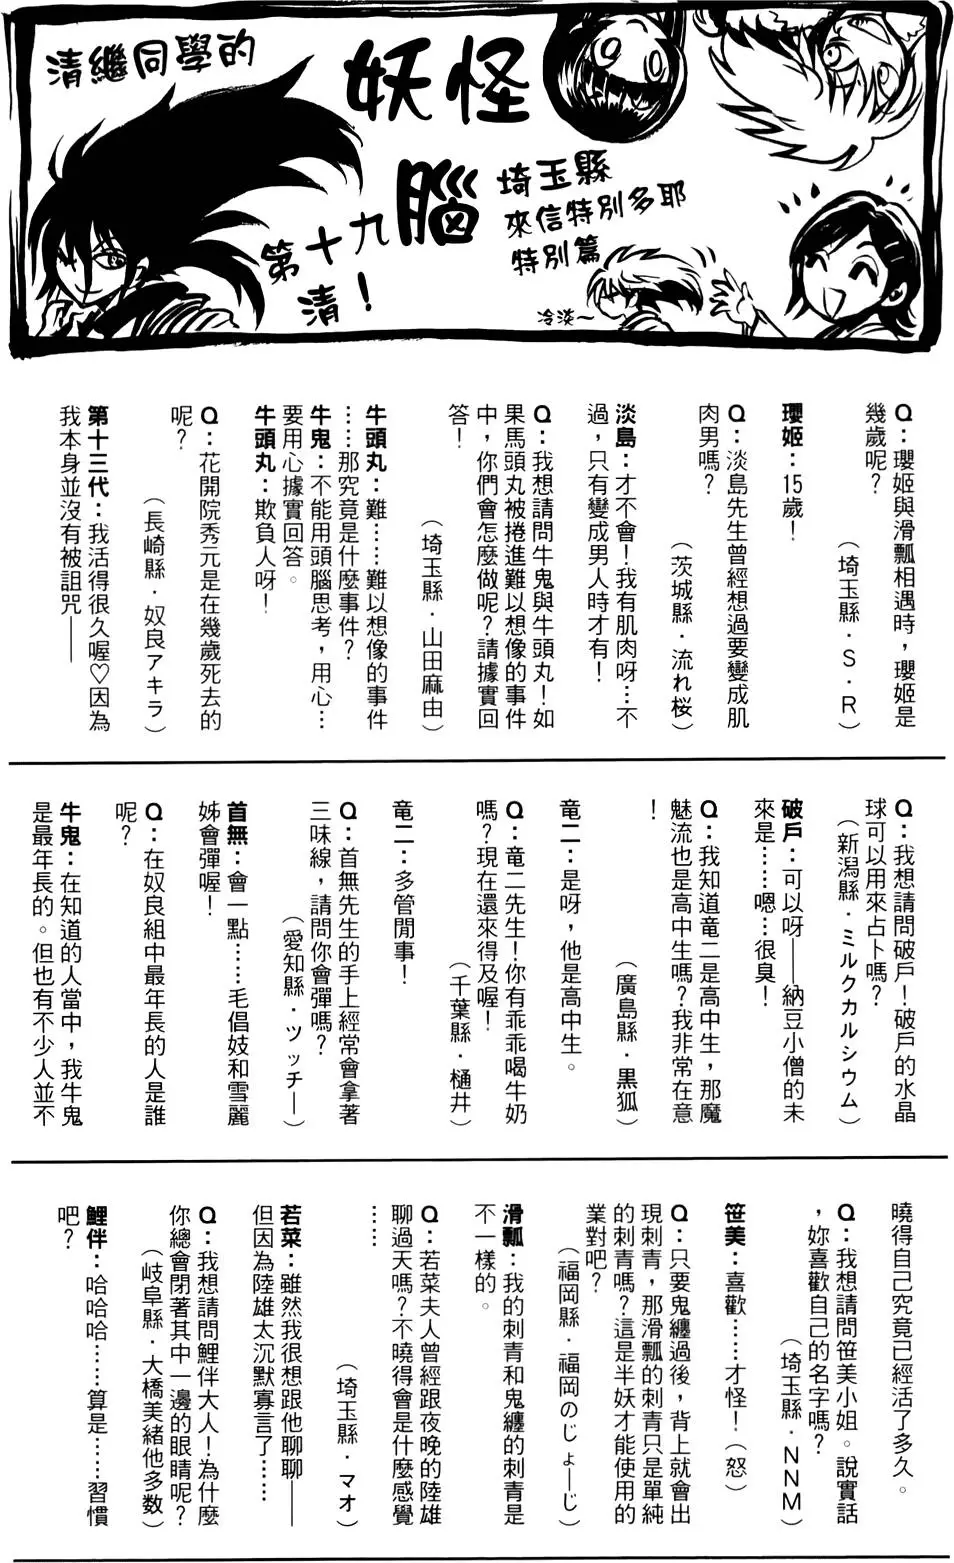 清繼同學的
妖怪
腦
第十九
清！
埼玉縣
來信特別多耶
特別篇
冷淡～
Q：瓔姬與滑瓢相遇時，瓔姬是
幾歲呢？
（埼玉縣．S．R）
瓔姬：15歲！
Q：淡島先生曾經想過要變成肌
肉男嗎？
（茨城縣．流れ桜）
淡島：才不會！我有肌肉呀…不
過，只有變成男人時才有！
Q：我想請問牛鬼與牛頭丸！如
果馬頭丸被捲進難以想像的事件
中，你們會怎麼做呢？請據實回
答！
（埼玉縣．山田麻由）
牛頭丸：難……難以想像的事件
……那究竟是什麼事件？
牛鬼：不能用頭腦思考，用心…
要用心據實回答。
牛頭丸：欺負人呀！
Q：花開院秀元是在幾歲死去的
呢？
（長崎縣．奴良アキラ）
第十三代：我活得很久喔♡因為
我本身並沒有被詛咒——
Q：我想請問破戶！破戶的水晶
球可以用來占卜嗎？
（新潟縣．ミルクカルシウム）
破戶：可以呀——納豆小僧的未
來是……嗯…很臭！
Q：我知道竜二是高中生，那魔
魅流也是高中生嗎？我非常在意
！
（廣島縣．黒狐）
竜二：是呀，他是高中生。
Q：竜二先生！你有乖乖喝牛奶
嗎？現在還來得及喔！
（千葉縣．樋井）
竜二：多管閒事！
Q：首無先生的手上經常會拿著
三味線，請問你會彈嗎？
（愛知縣．ツッチー）
首無：會一點……毛倡妓和雪麗
姊會彈喔！
Q：在奴良組中最年長的人是誰
呢？
牛鬼：在知道的人當中，我牛鬼
是最年長的。但也有不少人並不
曉得自己究竟已經活了多久。
Q：我想請問笹美小姐。說實話
，妳喜歡自己的名字嗎？
（埼玉縣．NNM）
笹美：喜歡……才怪！（怒）
Q：只要鬼纏過後，背上就會出
現刺青，那滑瓢的刺青只是單純
的刺青嗎？這是半妖才能使用的
業對吧？
（福岡縣．福岡のじょーじ）
滑瓢：我的刺青和鬼纏的刺青是
不一樣的。
Q：若菜夫人曾經跟夜晚的陸雄
聊過天嗎？不曉得會是什麼感覺
……
（埼玉縣．マオ）
若菜：雖然我很想跟他聊聊——
但因為陸雄太沉默寡言了……
Q：我想請問鯉伴大人！為什麼
你總會閉著其中一邊的眼睛呢？
（岐阜縣．大橋美緒他多数）
鯉伴：哈哈哈……算是……習慣
吧？